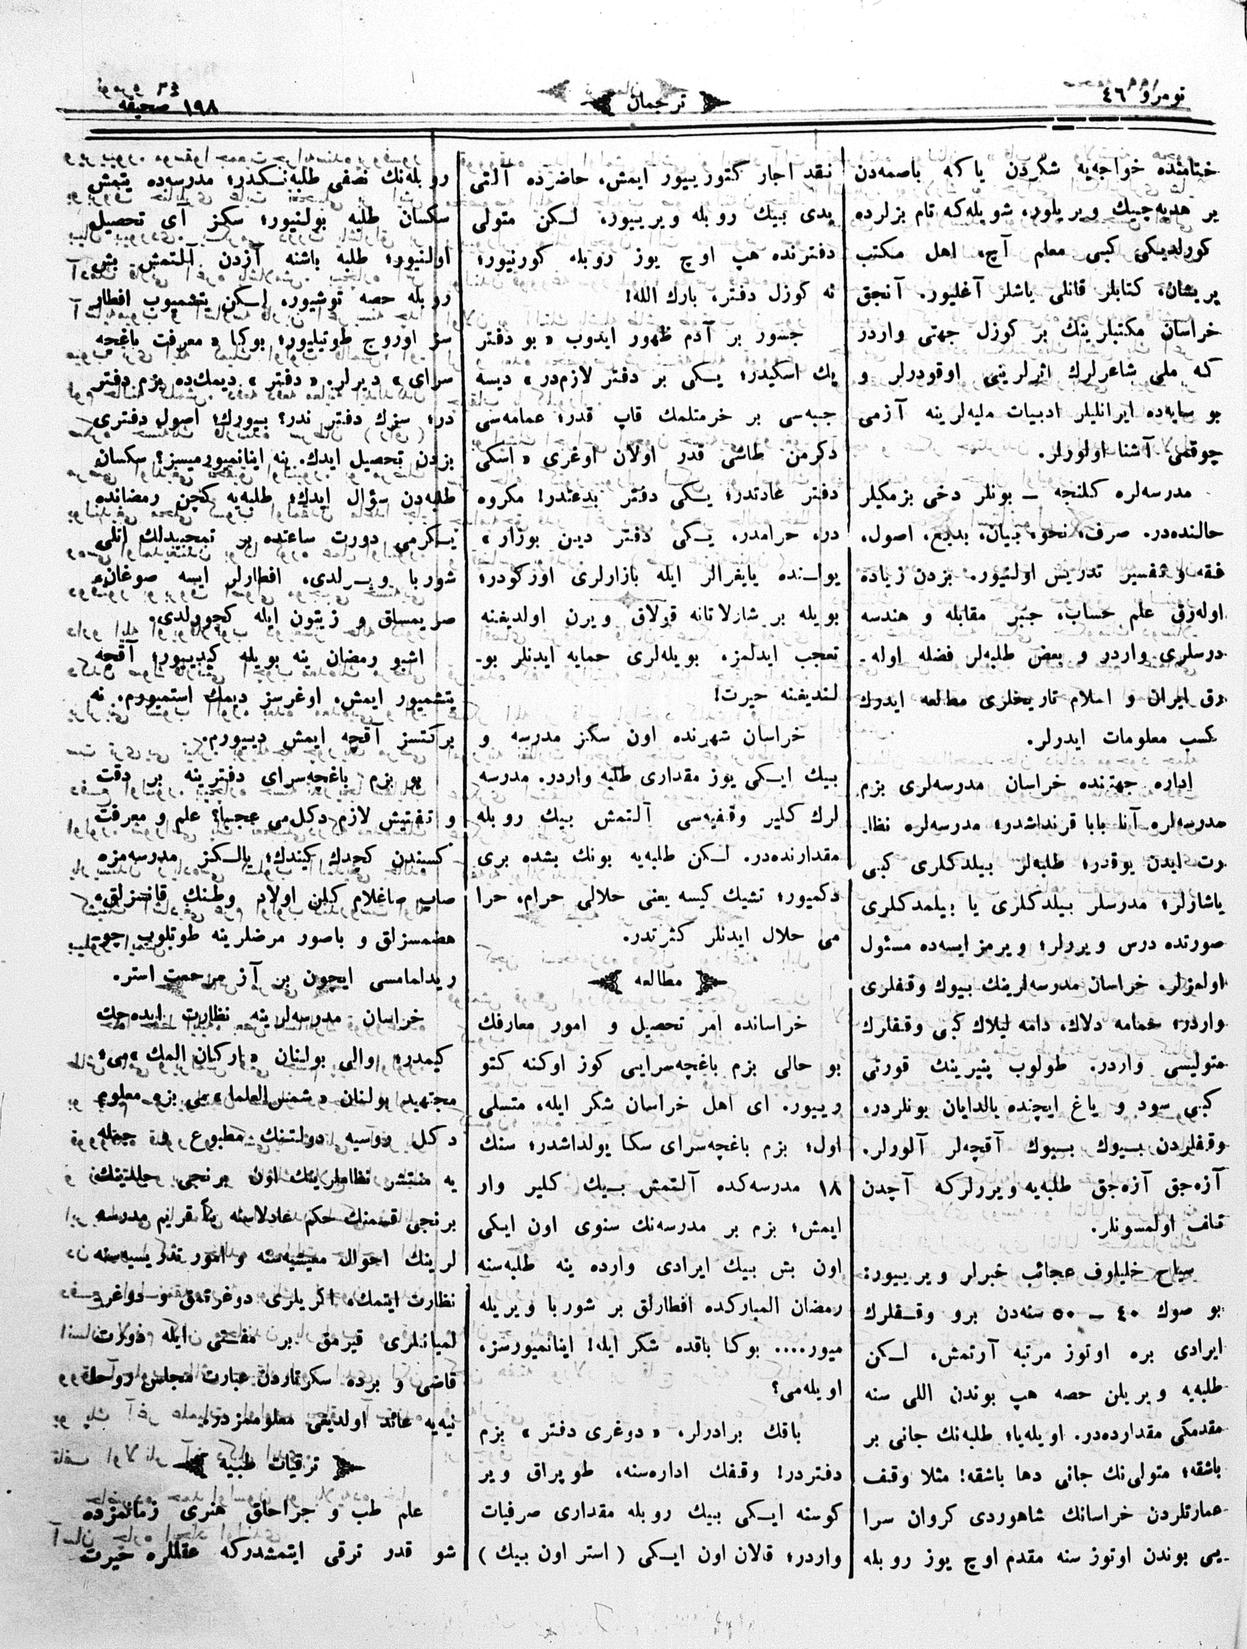 نومرو ٤٦
ترجمان
١٩٨ صحیفه
ختامنده خواجه‌یه شکردن یاکه باصمه‌دن
بر هدیه‌جیك ویریلور، شویله‌که تام بزلرده
کورلدیکی کبی معلم آچ، اهل مکتب
پریشان، کتابلر قانلی یاشلر آغلیور. آنجق
خراسان مکتبلرینك بر کوزل جهتی واردر
که ملی شاعرلرك اثرلرینی اوقودرلر و
بو سایه‌ده ایرانلیلر ادبیات ملیه‌لرینه آزمی
چوقمی آشنا اولورلر.
مدرسه‌لره کلنجه ــ بونلر دخی بزمکیلر
حالنده‌در. صرف، نحو، بیان، بدیع، اصول،
فقه و تفسیر تدریس اولنیور. بزدن زیاده
اوله‌رق علم حساب، جبر مقابله و هندسه
درسلری واردر و بعض طلبه‌لر فضله اوله‌ـ
رق ایران و اسلام تاریخلری مطالعه ایدرك
کسب معلومات ایدرلر.
اداره جهتنده خراسان مدرسه‌لری بزم
مدرسه‌لره آنا بابا قرنداشدر؛ مدرسه‌لره نظا۔
رت ایدن یوقدر؛ طلبه‌لر بیلدکلری کبی
یاشازلر؛ مدرسلر بیلدکلری یا بیلمدکلری
صورتده درس ویررلر؛ ویرمز ایسه‌ده مسئول
اولمزلر. خراسان مدرسه‌لرینك بیوك وقفلری
واردر؛ عمامه دلاك، دامه لیلاك کبی وقفلرك
متولیسی واردر. طولوب پنیرینك قورتی
کبی سود و یاغ ایچنده یالدایان بونلردر.
وقفلردن بیوك بیوك آقچه‌لر آلورلر.
آزه‌جق آزه‌جق طلبه‌یه ویررلرکه آچدن
تلف اولمسونلر.
سیاح خلیلوف عجائب خبرلر ویرییور:
بو صوك ٤٠ ــ ٥٠ سنه‌دن برو وقفلرك
ایرادی بره اوتوز مرتبه آرتمش، لکن
طلبه‌یه ویریلن حصه هپ بوندن اللی سنه
مقدمکی مقدارده‌در. اویله‌یا؛ طلبه‌نك جانی بر
باشقه؛ متولی‌نك جانی دها باشقه! مثلا وقف
عمارتلردن خراسانك شاهوردی کروان سرا
یی بوندن اوتوز سنه مقدم اوچ یوز روبله
نقد اجار کتورییور ایمش، حاضرده آلتی
یدی بیك روبله ویرییور. لکن متولی
دفترنده هپ اوچ یوز روبله کورنیور؛
نه کوزل دفتر، بارك الله!
جسور بر آدم ظهور ایدوب « بو دفتر
پك اسکیدر؛ یکی بر دفتر لازم‌در » دیسه
جبه‌سی بر خرمتلمك قاپ قدر؛ عمامه‌سی
دکرمن طاشی قدر اولان اوغری « اسکی
دفتر عادتدر؛ یکی دفتر بدعتدر! مکروه
در، حرامدر، یکی دفتر دین بوزار »
یولنده یایغرالر ایله بازارلری اورکودر؛
بویله بر شارلاتانه قولاق ویرن اولدیغنه
تعجب ایدلمز، بویله‌لری حمایه ایدنلر بو۔
لندیغنه حیرت!
خراسان شهرنده اون سکز مدرسه و
بیك ایکی یوز مقداری طلبه واردر. مدرسه
لرك کلیر وقفیه‌سی آلتمش بیك روبله
مقدارنده‌در. لکن طلبه‌یه بونك بشده بری
دکمیور؛ تشیك کیسه یعنی حلالی حرام، حرا
می حلال ایدنلر کثرتدر.
مطالعه
خراسانده امر تحصیل و امور معارفك
بو حالی بزم باغچه‌سرایی کوز اوکنه کتو
رییور. ای اهل خراسان شکر ایله، متسلی
اول؛ بزم باغچه‌سرای سکا یولداشدر؛ سنك
١٨ مدرسه‌کده آلتمش بیك کلیر وار
ایمش؛ بزم بر مدرسه‌نك سنوی اون ایکی
اون بش بیك ایرادی وارده ینه طلبه‌سنه
رمضان المبارکده افطارلق بر شوربا ویریله
میور.... بوکا باقده شکر ایله! اینانمیورسز،
اویله‌می؟
باقك برادرلر، « دوغری دفتر » بزم
دفتردر! وقفك اداره‌سنه، طوپراق ویر
کوسنه ایکی بیك روبله مقداری صرفیات
واردر؛ قالان اون ایکی ( استر اون بیك )
روبله‌نك نصفی طلبه‌نکدر؛ مدرسه‌ده یتمش
سکسان طلبه بولنیور؛ سکز آی تحصیل
اولنیور؛ طلبه باشنه آزدن آلتمش بش
روبله حصه توشیور، لکن یتشمیوب افطار
سز اوروج طوتیلیور؛ بوکا « معرفت باغچه
سرای » دیرلر. « دفتر » دیمك‌ده بزم دفتر
در؛ سزك دفتر ندر؟ بیورك؛ اصول دفتری
بزدن تحصیل ایدك. ینه اینانمیورمیسز؟ سکسان
طلبه‌دن سؤال ایدك؛ طلبه‌یه کچن رمضانده
یکرمی دورت ساعتده بر تمجیدلك اتلی
شوربا ویرلدی، افطارلر ایسه صوغان،
صریمساق و زیتون ایله کچورلدی.
اشبو رمضان ینه بویله کیدییور؛ آقچه
یتشمیور ایمش. اوغرسز دیمك استمیورم. نه
برکتسز آقچه ایمش دییورم.
بو بزم باغچه‌سرای دفترینه بر دقت
و تفتیش لازم دکل‌می عجبا؟ علم و معرفت
کسندن کچدك کیندك؛ یالکز مدرسه‌مزه
صاپ صاغلام کلن اولاد وطنك قانسزلق،
هضمسزلق و باصور مرضلرینه طوتلوب چو۔
ریدلمامسی ایچون بر آز مرحمت استر.
خراسان مدرسه‌لرینه نظارت ایده‌جك
کیمدر، والی بولنان « ارکان الملك »می؛
مجتهید بولنان « شمس العلما »می بزه معلوم
دکل روسیه دولتنك مطبوع و جمله
یه منتشر نظاملرینك اون برنجی جلدینك
برنجی قسمنك حکم عادلانه‌سنه کوره قریم مدرسه
لرینك احوال معیشیه‌سنه و امور تدریسیه‌سنه
نظارت ایتمك، اکریلری دوغرتمق و دوغر۔
لمیانلری قیرمق بر مفتی ایله دورت
قاضی و برده سکرتاردن عبارت مجلس روحا۔
نیه‌یه عائد اولدیغی معلوممزدر.
ترقیات طبیه
علم طب و جراحلق هنری زمانمزده
شو قدر ترقی ایتمشدرکه عقللره حیرت